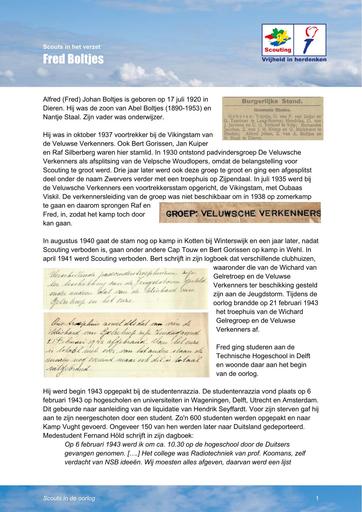 Scouts in het verzet
Fred Boltjes
Scouting
Vrijheid in herdenken
Alfred (Fred) Johan Boltjes is geboren op 17 juli 1920 in
Dieren. Hij was de zoon van Abel Boltjes (1890-1953) en
Nantje Staal. Zijn vader was onderwijzer.
Burgerlijke Stand.
Hij was in oktober 1937 voortrekker bij de Vikingstam van
de Veluwse Verkenners. Ook Bert Gorissen, Jan Kuiper
en Raf Silberberg waren hier stamlid. In 1930 ontstond padvindersgroep De Veluwsche
Verkenners als afsplitsing van de Velpsche Woudlopers, omdat de belangstelling voor
Scouting te groot werd. Drie jaar later werd ook deze groep te groot en ging een afgesplitst
deel onder de naam Zwervers verder met een troephuis op Zijpendaal. In juli 1935 werd bij
de Veluwsche Verkenners een voortrekkersstam opgericht, de Vikingstam, met Oubaas
Viskil. De verkennersleiding van de groep was niet beschikbaar om in 1938 op zomerkamp
te gaan en daarom sprongen Raf en
Fred in, zodat het kamp toch door
kon gaan.
GROEP: VELUWSCHE VERKENNERS
In augustus 1940 gaat de stam nog op kamp in Kotten bij Winterswijk en een jaar later, nadat
Scouting verboden is, gaan onder andere Cap Touw en Bert Gorissen op kamp in Wehl. In
april 1941 werd Scouting verboden. Bert schrijft in zijn logboek dat verschillende clubhuizen,
waaronder die van de Wichard van
Gelretroep en de Veluwse
Verkenners ter beschikking gesteld
zijn aan de Jeugdstorm. Tijdens de
oorlog brandde op 21 februari 1943
het troephuis van de Wichard
Gelregroep en de Veluwse
Verkenners af.
Fred ging studeren aan de
Technische Hogeschool in Delft
en woonde daar aan het begin
van de oorlog.
Hij werd begin 1943 opgepakt bij de studentenrazzia. De studentenrazzia vond plaats op 6
februari 1943 op hogescholen en universiteiten in Wageningen, Delft, Utrecht en Amsterdam.
Dit gebeurde naar aanleiding van de liquidatie van Hendrik Seyffardt. Voor zijn sterven gaf hij
aan te zijn neergeschoten door een student. Zo'n 600 studenten werden opgepakt en naar
Kamp Vught gevoerd. Ongeveer 150 van hen werden later naar Duitsland gedeporteerd.
Medestudent Fernand Höld schrijft in zijn dagboek:
Op 6 februari 1943 werd ik om ca. 10.30 op de hogeschool door de Duitsers
gevangen genomen. [….] Het college was Radiotechniek van prof. Koomans, zelf
verdacht van NSB ideeën. Wij moesten alles afgeven, daarvan werd een lijst
Scouts in de oorlog
1